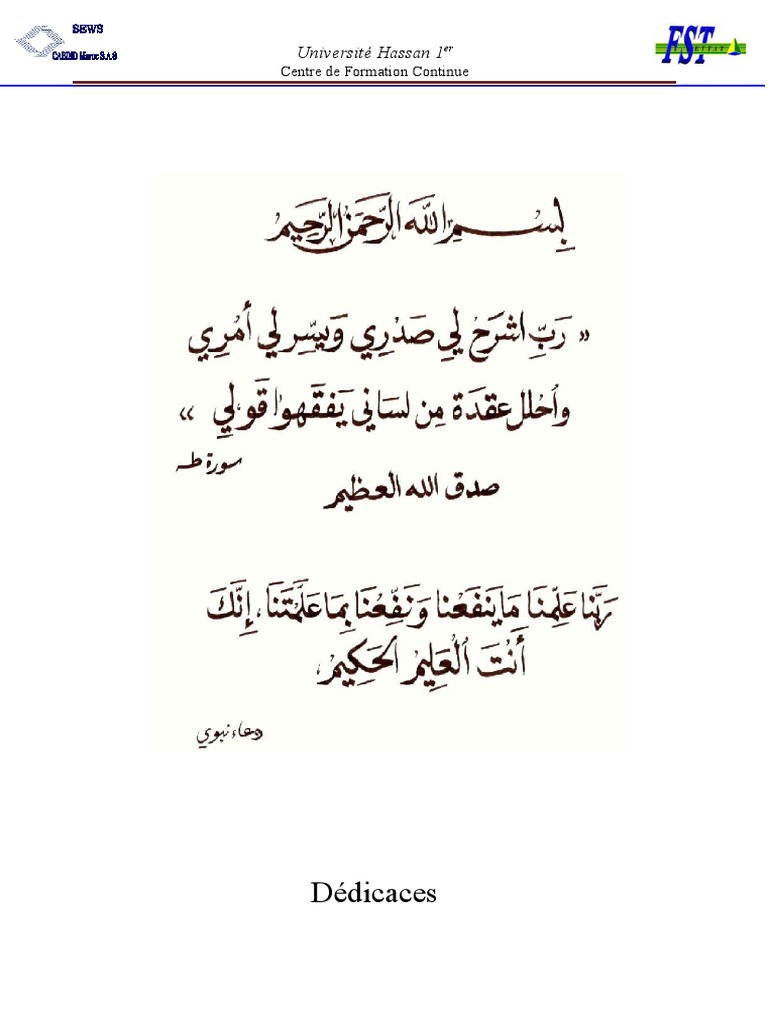 SEWS
CABIND Maroc S.A.S
Université Hassan 1er
Centre de Formation Continue
FST
SETTAT
بِسْمِ اللهِ الرَّحْمَنِ الرَّحِيمِ
« رَبِّ اشْرَحْ لِي صَدْرِي وَيَسِّر لِي أَمْرِي
وَاحْلل عقدَة مِن لسَاني يَفقَهوا قَولِي »
سورة طه
صدق الله العظيم
رَبَّنا عَلِّمنَا مَا يَنفَعْنا وَنَفِّعْنَا بِمَا عَلَّمْتَنَا، إِنَّكَ
أَنْتَ الْعَلِيمُ الحَكِيمُ،
دعاء نبوي
Dédicaces